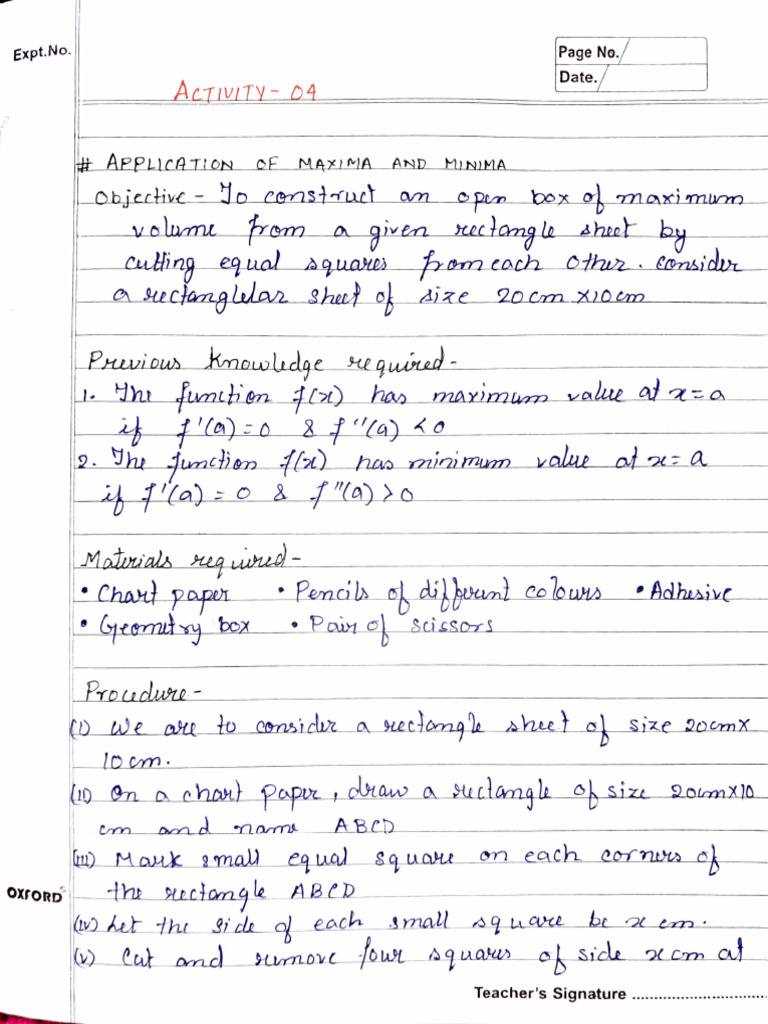 Expt.No.
Page No.
Date.
ACTIVITY - 04
# APPLICATION OF MAXIMA AND MINIMA
Objective - To construct an open box of maximum
volume from a given rectangle sheet by
cutting equal squares from each other. consider
a rectanglelar sheet of size 20cm x10cm
Previous Knowledge required -
1. The function f(x) has maximum value at x = a
if f'(a) = 0 & f''(a) < 0
2. The function f(x) has minimum value at x = a
if f'(a) = 0 & f"(a) > 0
Materials required -
• Chart paper • Pencils of different colours • Adhesive
• Geometry box • Pair of scissors
Procedure -
(i) We are to consider a rectangle sheet of size 20cm x
10cm.
(ii) On a chart paper, draw a rectangle of size 20cm x10
cm and name ABCD
(iii) Mark small equal square on each corners of
the rectangle ABCD
(iv) Let the side of each small square be x cm.
(v) Cut and remove four squares of side x cm at
OXFORD
Teacher's Signature